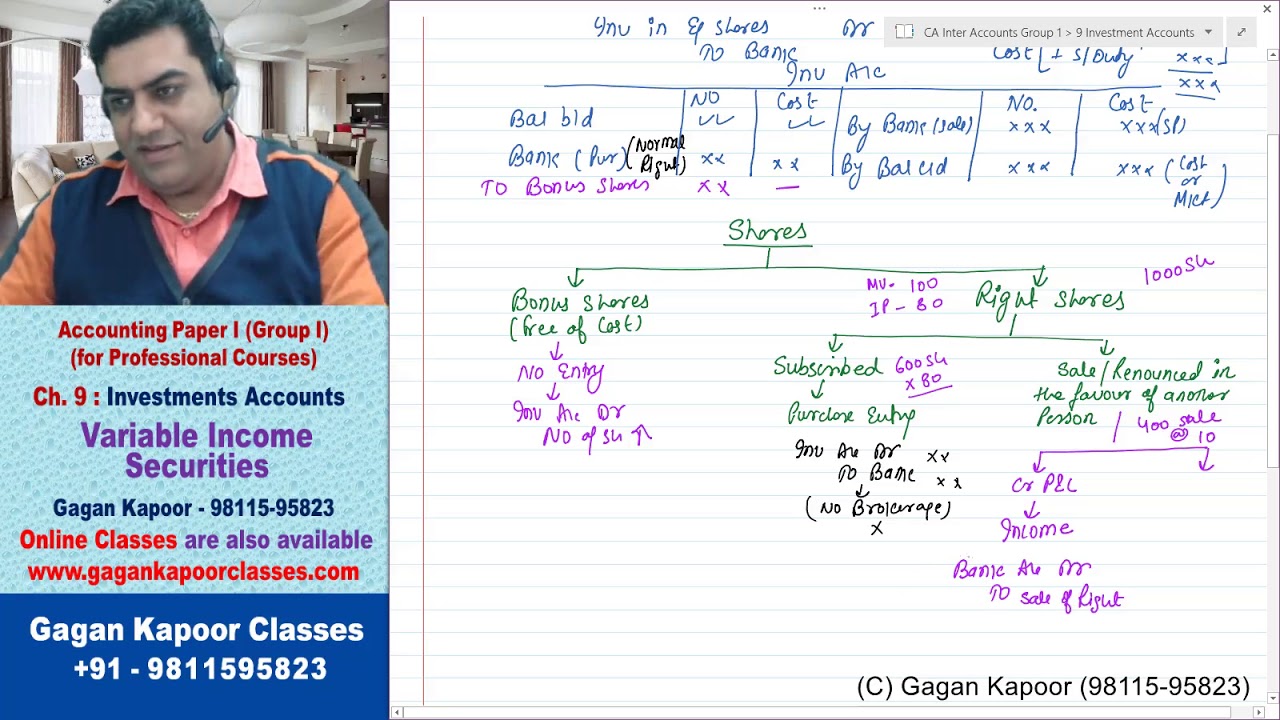 Inv in Eq shares Dr
To Bank
Cost [+ S/Duty xxx]
xxx
CA Inter Accounts Group 1 > 9 Investment Accounts
Inv A/c
No Cost No. Cost
Bal b/d ✓✓ ✓✓ By Bank (Sale) xxx xxx (SP)
Bank (Pur) (Normal Right) xx xx By Bal c/d xxx xxx (Cost or Mkt)
To Bonus Shares xx —
Shares
1000 Sh
Bonus Shares
(Free of Cost)
No Entry
Inv A/c Dr
No of Sh ↑
MV - 100
IP - 80
Right Shares
Subscribed 600 Sh
x 80
Purchase Entry
Inv A/c Dr xx
To Bank xx
(No Brokerage)
x
Sale/Renounced in
the favour of another
Person
400 Sale
@ 10
Cr P&L
Income
Bank A/c Dr
To Sale of Right
Accounting Paper I (Group I)
(for Professional Courses)
Ch. 9 : Investments Accounts
Variable Income
Securities
Gagan Kapoor - 98115-95823
Online Classes are also available
www.gagankapoorclasses.com
Gagan Kapoor Classes
+91 - 9811595823
(C) Gagan Kapoor (98115-95823)